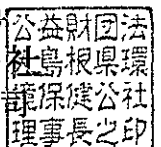 公益財団法
社島根県環
境保健公社
理事長之印